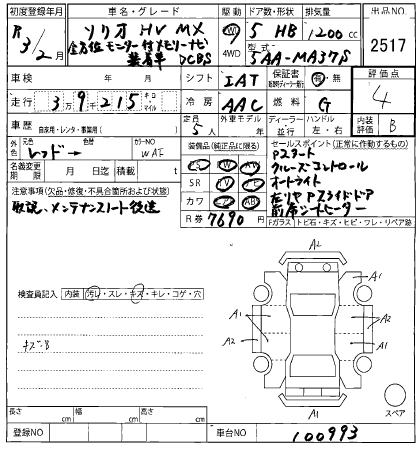 初度登録年月 車名・グレード 駆動 ドア数・形状 排気量 出品NO
R3/2月 ソリオ HV MX 2WD 5 HB 1200cc 2517
全方位モニター付メモリーナビ
装着車 DCBS
4WD 型式 5AA-MA37S
車検 年 月 シフト IAT 保証書 有・無 評価点
走行 39215 キロ マイル 冷房 AAC 燃料 G 4
車歴 自家用・レンタ・事業用( ) 定員 5人 外車モデル 年 ディーラー ハンドル 左・右 内装評価 B
外色 元色 レッド→ 色替 カラーNO WAE
装備品(純正品に限る) セールスポイント(正常に作動するもの)
名義変更期限 月 日迄 積載 t
PS AW PW Pスタート
SR クルーズコントロール
注意事項(欠品・修復・不具合箇所および状態) オートライト
取説、メンテナンスノート後送 カワ TV AB 左リヤPスライドドア
R券 7690円 前席シートヒーター
Fガラス トビ石・キズ・ヒビ・ワレ・リペア跡
検査員記入 内装 汚レ・スレ・キズ・キレ・コゲ・穴
キズB
A2
A1
A1
A2
A1
A2
A1
スペア
長さ cm 幅 cm 高さ cm
登録NO 車台NO 100993